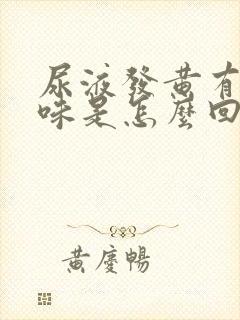 尿液發黃有
味是怎麼回
黃慶暢